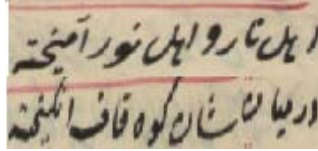 اهل نار و اهل نور آمیخته
در میانشان کوه قاف انگیخته